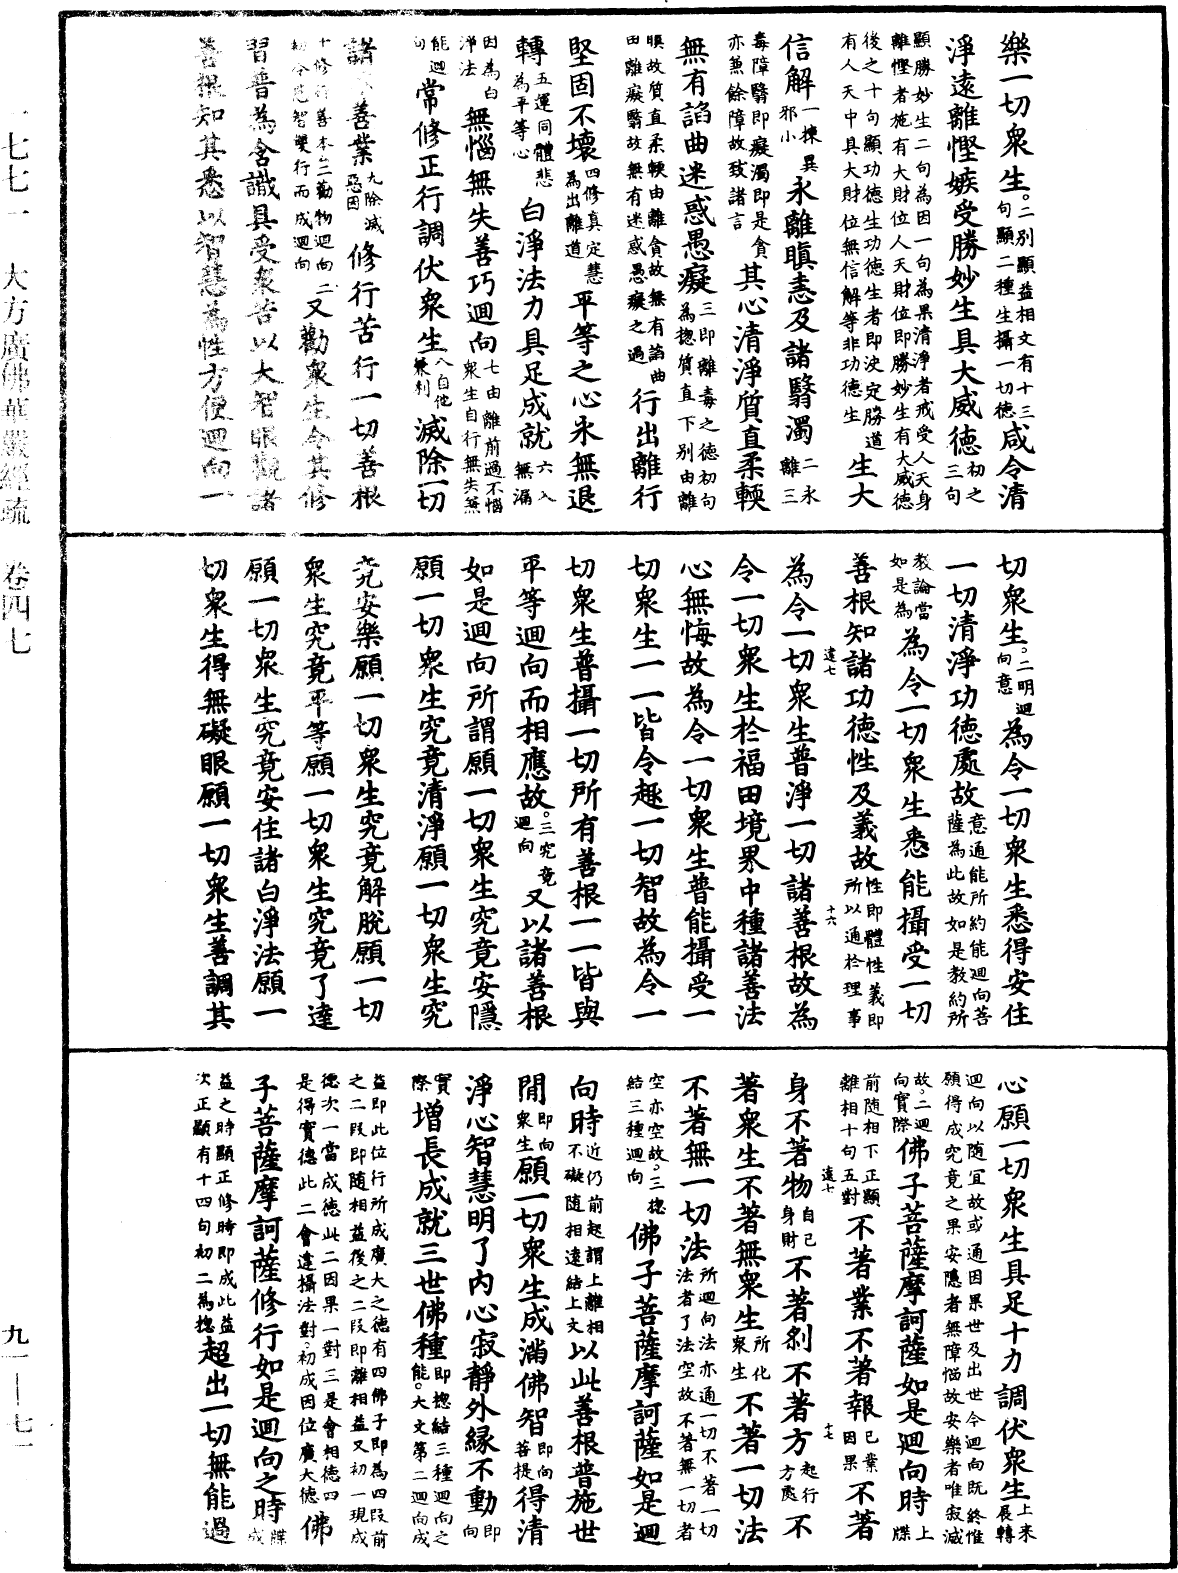 樂一切衆生。二別顯益相文有十三句顯二種生攝一切德咸令清
淨遠離慳嫉受勝妙生具大威德初之三句
顯勝妙生二句為因一句為果清淨者戒受人天身離慳者施有大財位人天財位即勝妙生有大威德
後之十句顯功德生功德生者即決定勝道有人天中具大財位無信解等非功德生生大
信解一揀異邪小永離瞋恚及諸翳濁二永離三
毒障翳即癡濁即是貪亦兼餘障故致諸言其心清淨質直柔輭
無有諂曲迷惑愚癡三即離毒之德初句為揔質直下別由離
瞋故質直柔輭由離貪故無有諂曲由離癡翳故無有迷惑愚癡之過行出離行
堅固不壞四修真定慧為出離道平等之心永無退
轉五運同體悲為平等心白淨法力具足成就六入無漏
因為白淨法無惱無失善巧迴向七由離前過不惱衆生自行無失兼
能迴向常修正行調伏衆生八自他兼利滅除一切
諸不善業九除滅惡因修行苦行一切善根
十修行善本二勸物迴向二初令悲智雙行而成迴向又勸衆生令其修
習普為含識具受衆苦以大智眼觀諸
善根知其悉以智慧為性方便迴向一
切衆生。二明迴向意為令一切衆生悉得安住
一切清淨功德處故意通能所約能迴向菩薩為此故如是教約所
教論當如是為為令一切衆生悉能攝受一切
善根知諸功德性及義故性即體性義即所以通於理事
為令一切衆生普淨一切諸善根故為
令一切衆生於福田境界中種諸善法
心無悔故為令一切衆生普能攝受一
切衆生一一皆令趣一切智故為令一
切衆生普攝一切所有善根一一皆與
平等迴向而相應故。三究竟迴向又以諸善根
如是迴向所謂願一切衆生究竟安隱
願一切衆生究竟清淨願一切衆生究
竟安樂願一切衆生究竟解脫願一切
衆生究竟平等願一切衆生究竟了達
願一切衆生究竟安住諸白淨法願一
切衆生得無礙眼願一切衆生善調其
心願一切衆生具足十力調伏衆生上來展轉
迴向以隨宜故或通因果世及出世今迴向既終惟願得成究竟之果安隱者無障惱故安樂者唯寂滅
故。二迴向實際佛子菩薩摩訶薩如是迴向時上牒
前隨相下正顯離相十句五對不著業不著報已業因果不著
身不著物自己身財不著剎不著方起行方處不
著衆生不著無衆生所化衆生不著一切法
不著無一切法所迴向法亦通一切不著一切法者了法空故不著無一切者
空亦空故。三揔結三種迴向佛子菩薩摩訶薩如是迴
向時近仍前起謂上離相不礙隨相遠結上文以此善根普施世
間即向衆生願一切衆生成滿佛智即向菩提得清
淨心智慧明了內心寂靜外緣不動即向
實際增長成就三世佛種即揔結三種迴向之能。大文第二迴向成
益即此位行所成廣大之德有四佛子即為四段前之二段即隨相益後之二段即離相益又初一現成
德次一當成德此二因果一對三是會相德四是得實德此二會違攝法對。初成因位廣大德佛
子菩薩摩訶薩修行如是迴向之時牒成
益之時顯正修時即成此益次正顯有十四句初二為揔超出一切無能過
遠七
十六
遠七
十七
一七七一 大方廣佛華嚴經疏 卷四七
九一—七一